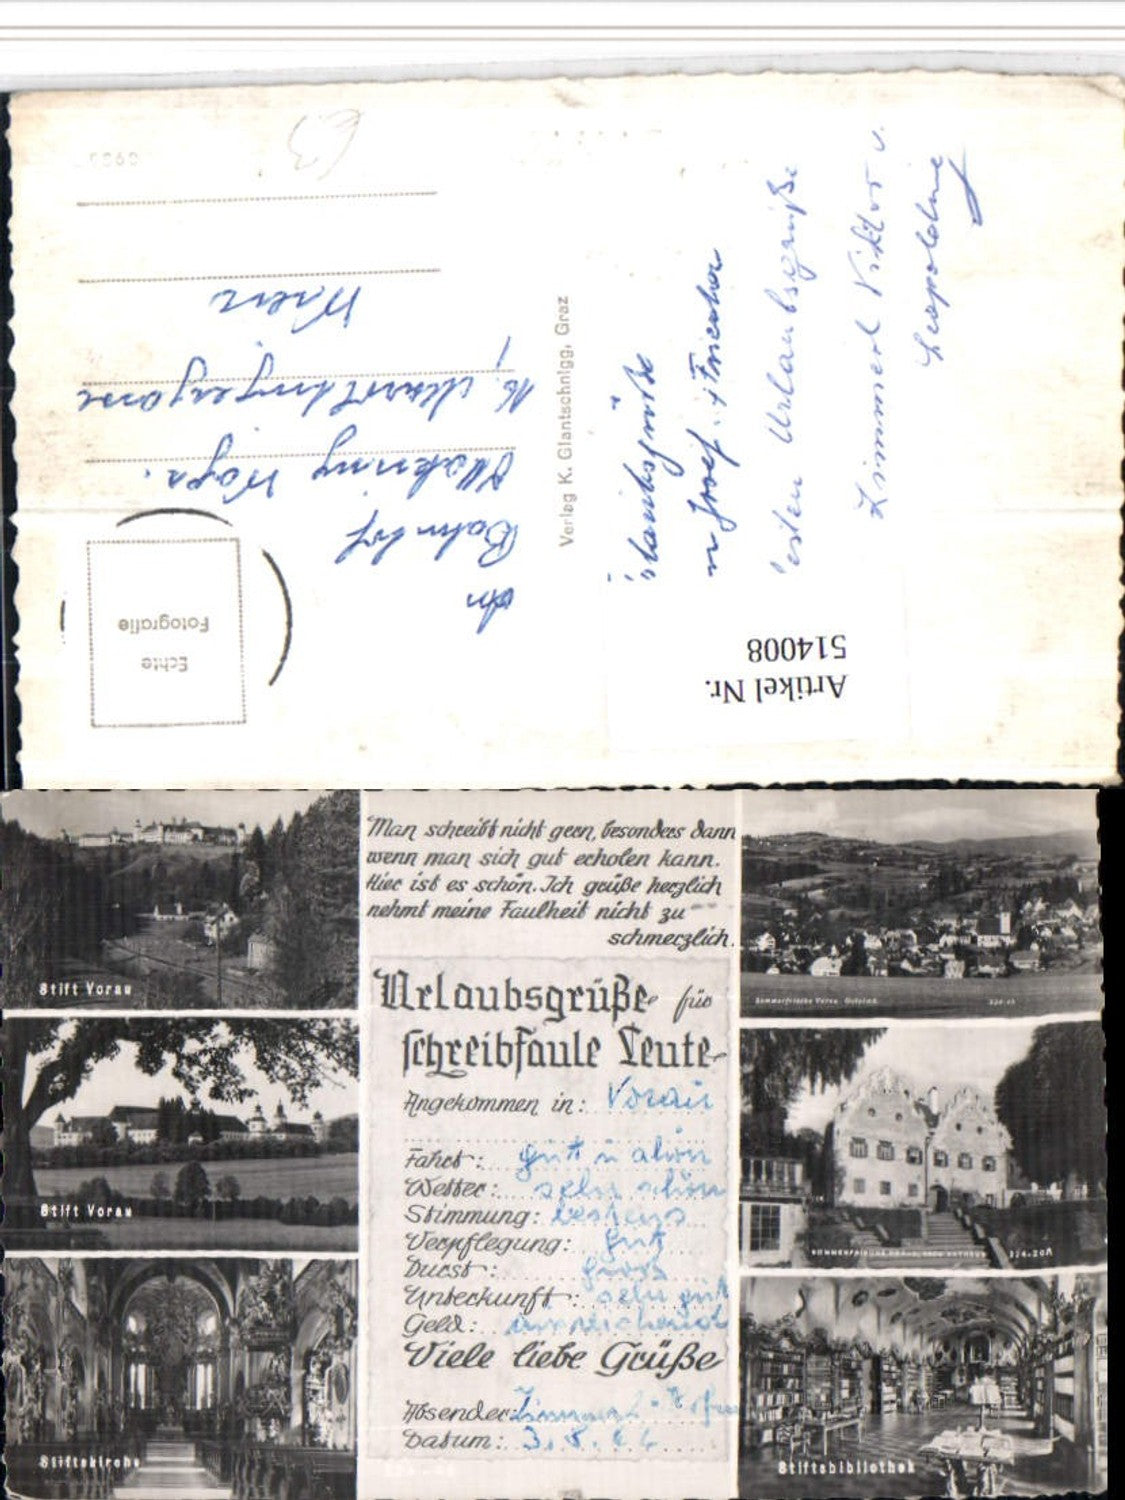 Echte
Fotografie
An
Bahnhof
Ottakring
16.
Wien
Verlag K. Glantschnigg, Graz
Artikel Nr.
514008
Urlaubsgrüße
Josef
Urlaubsgrüße
Zimmerl Viktor u.
Leopoldine
Stift Vorau
Stift Vorau
Stiftskirche
Man schreibt nicht gern, besonders dann
wenn man sich gut erholen kann.
Hier ist es schön. Ich grüße herzlich
nehmt meine Faulheit nicht zu
schmerzlich.
Urlaubsgrüße für
schreibfaule Leute
Angekommen in: Vorau
Fahrt: gut u
Wetter: sehr schön
Stimmung: bestens
Verpflegung: gut
Durst: gross
Unterkunft: sehr gut
Geld: ausreichend
Viele liebe Grüße
Absender:
Datum: 3.8.
Sommerfrische Vorau Oststmk.
324-20A
Stiftsbibliothek